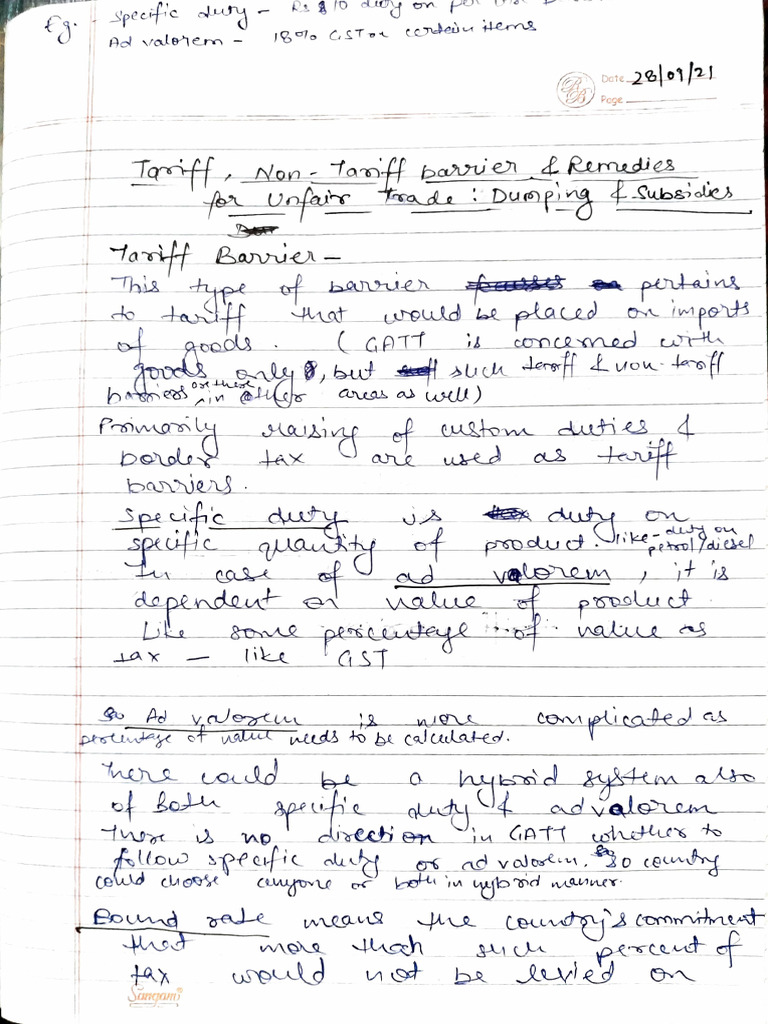 Eg. Specific duty - Rs 10 duty on per
Ad valorem - 18% GST on certain items
Date 28/09/21
Page
Tariff, Non-Tariff barrier & Remedies
for Unfair Trade: Dumping & Subsidies
Tariff Barrier -
This type of barrier pertains
to tariff that would be placed on imports
of goods. (GATT is concerned with
goods only, but such tariff & non-tariff
barriers are there in other areas as well)
Primarily raising of custom duties &
border tax are used as tariff
barriers.
Specific duty is duty on
specific quantity of product. like - duty on petrol/diesel
In case of ad valorem, it is
dependent on value of product.
Like some percentage of value as
tax - like GST
So Ad valorem is more complicated as
percentage of value needs to be calculated.
There could be a hybrid system also
of both specific duty & ad valorem
There is no direction in GATT whether to
follow specific duty or ad valorem. So country
could choose anyone or both in hybrid manner.
Bound rate means the country's commitment
that more than such percent of
tax would not be levied on
Sangam